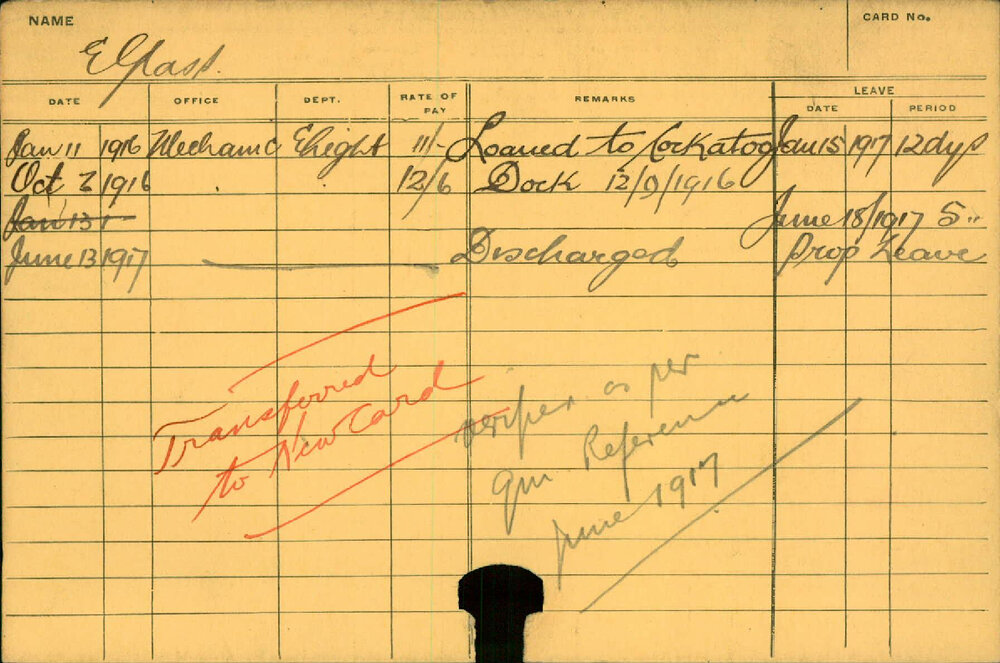 NAME
CARD No.
E Glass.
DATE OFFICE DEPT. RATE OF PAY REMARKS LEAVE
DATE PERIOD
Jan 11 1916 Mechanic 11/- Loaned to Cockatoo Jan 15 1917 12 dys
Oct 1916 12/6 Dock 12/9/1916
Jan 13 June 18/1917 5 "
June 13 1917 Discharged Prop Leave
Transferred
to New Card
as per
Reference
June 1917